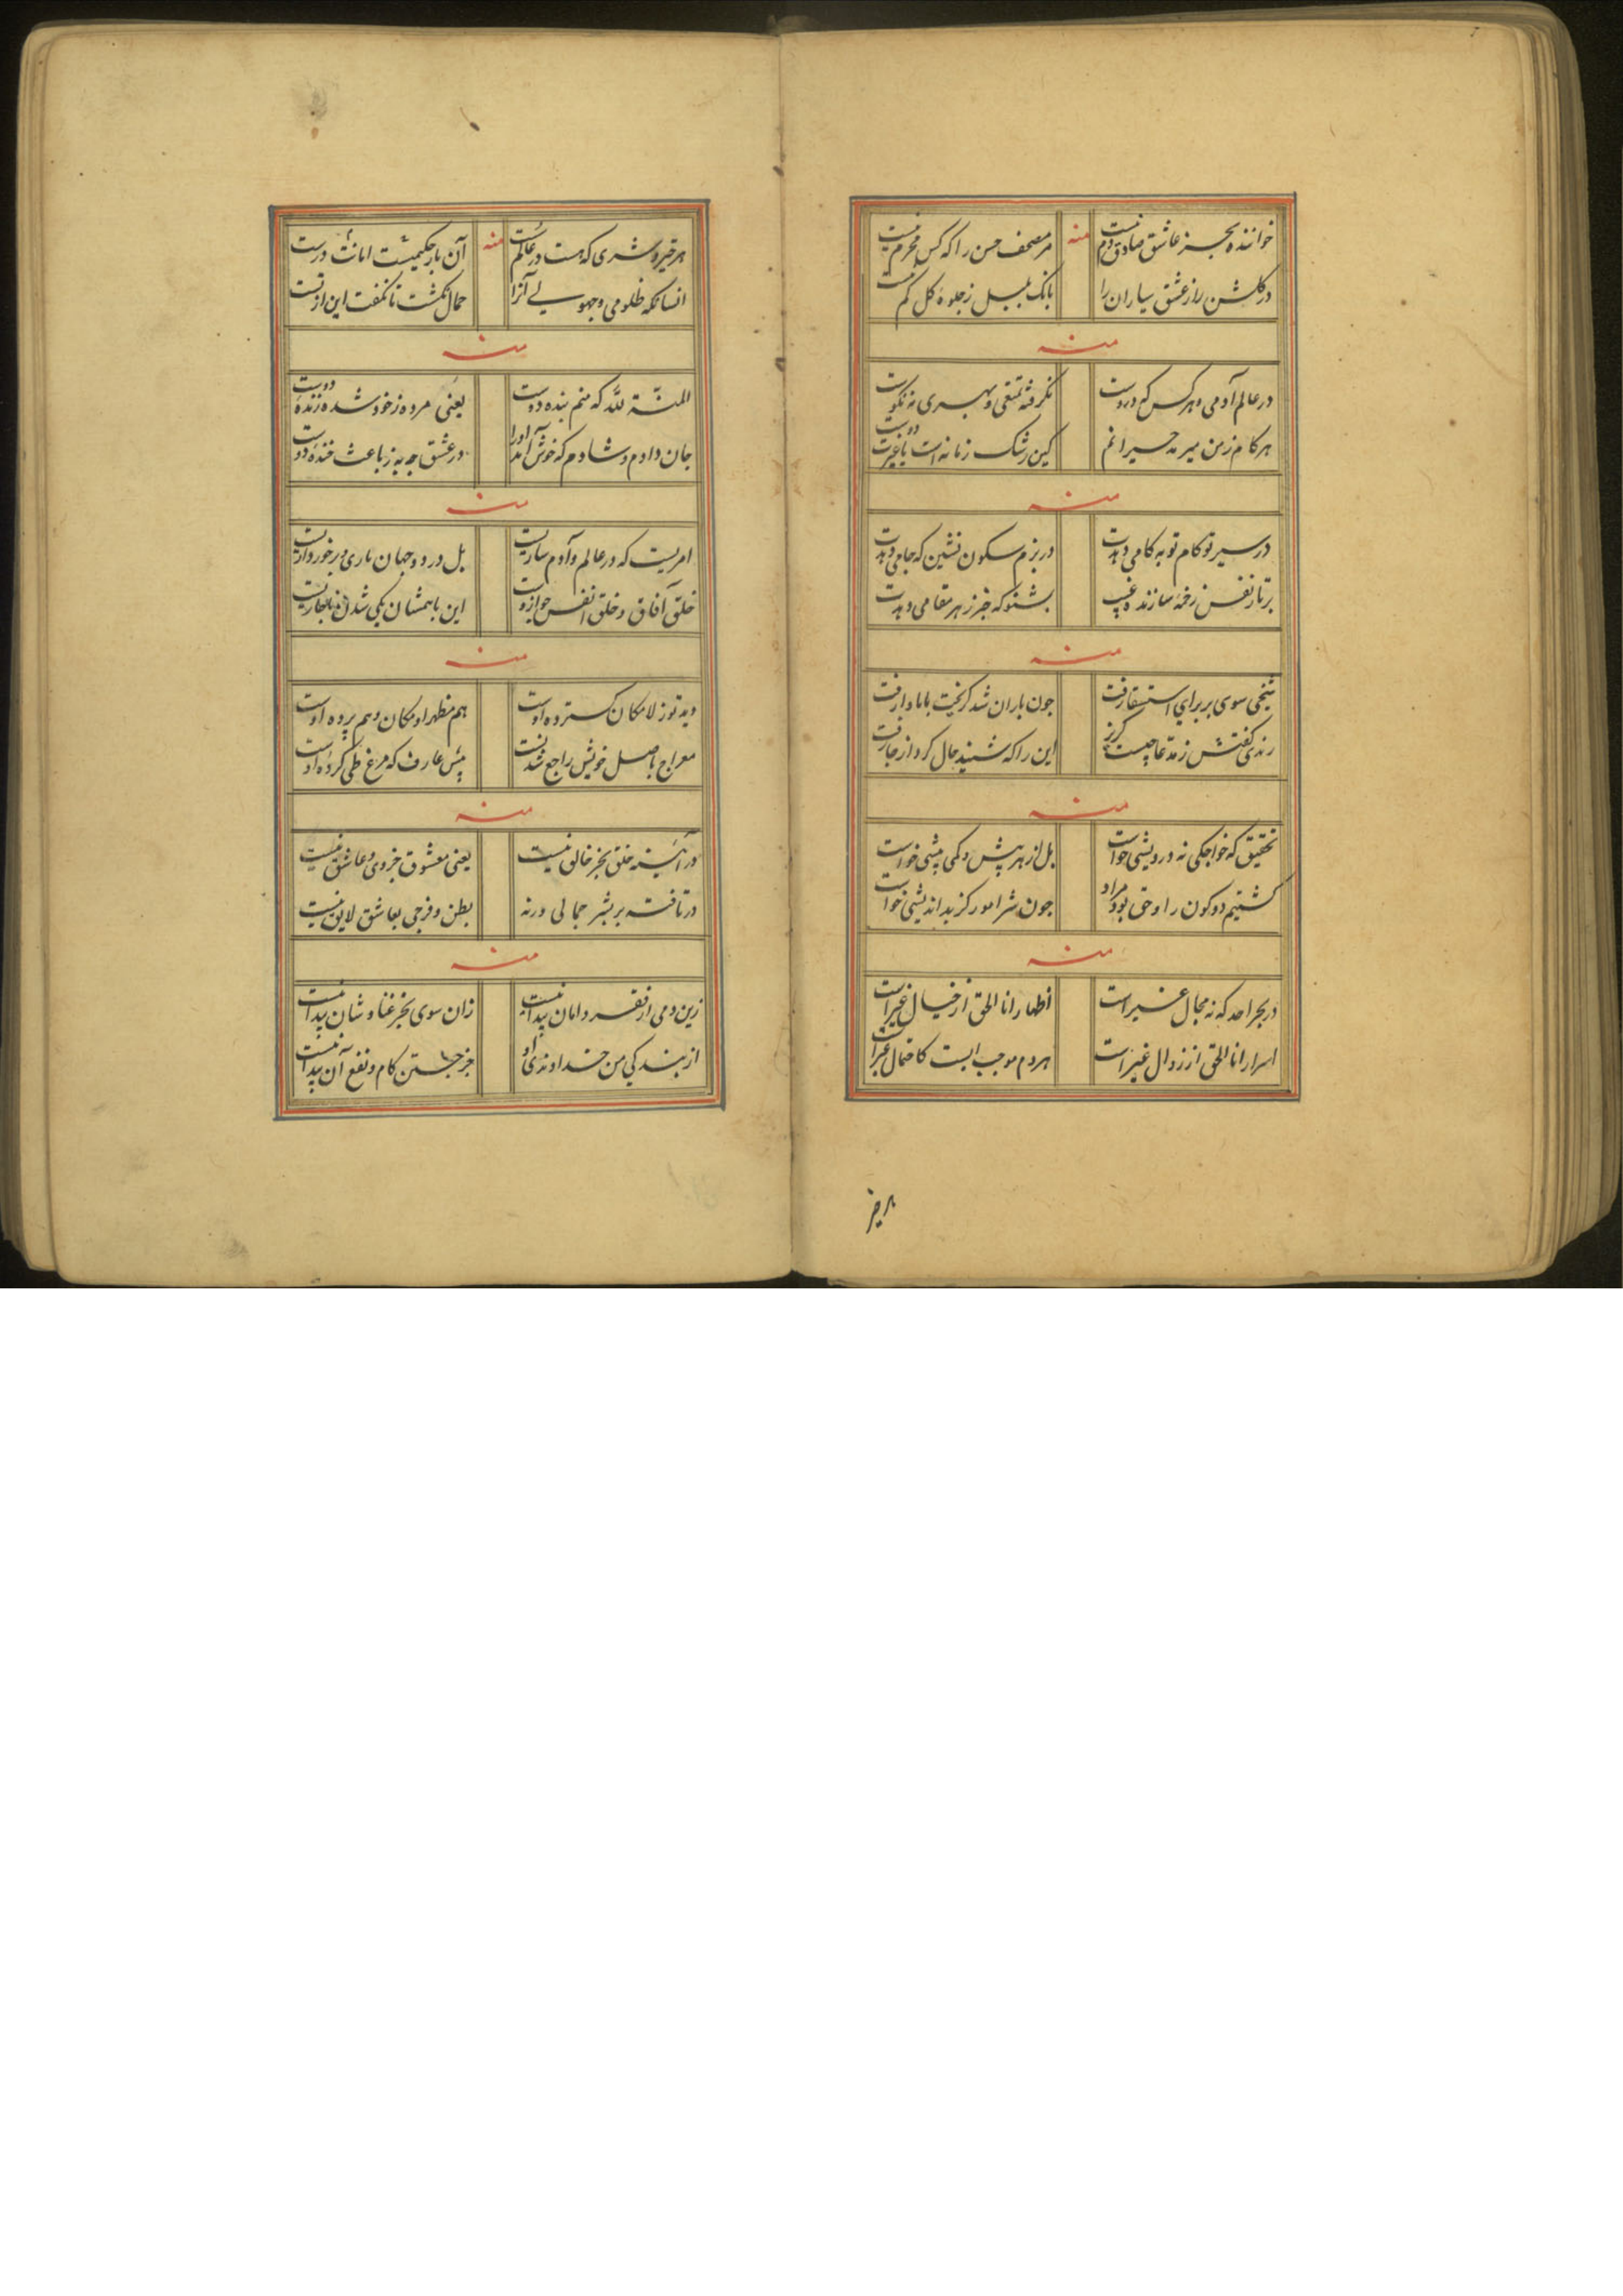 خواننده بجز عاشق صادق دم نیست منه مر مصحف حسن را که کس محرم نیست
در گلشن راز عشق بیاران را بانک بلبل ز جلوهٔ کل کم نیست
منه
در عالم آدمی و هرکس که دروست نکرفته تمتعی و بهری نه نکوست
هر کام زدن میرمد حیرانم کین رشک زمانه است یا غیرت دوست
منه
در سیر تو کام تو به کامی دهدت در بزم سکون نشین که جامی دهدت
بر تار نفس زخمهٔ سازنده غیب بشنو که خبر ز هر مقامی دهدت
منه
شیخی سوی بر برای استسقا رفت چون باران شد کریخت بابا وا رفت
رندی کفتش ز مدعا چیست کریز این را که شنید حال کرد از جا رفت
منه
تحقیق که خواجکی نه درویشی خواست بل از هر بیش و کمی بیشی خواست
کشتیم دو کون را و حق بود مراد چون شر امور کز بد اندیشی خواست
منه
در بحر احد که نه مجال غیر است اظهار انا الحق از خیال غیر است
اسرار انا الحق از زوال غیر است هردم موجب ایست کاحتمال غیر است
بر خیر
هر خیر و شری که هست در عالم تست منه آن بار حکیمیست امانت درست
انسانکه ظلومی و جهولی آنرا حمال نکشت تا نکفت این از تست
منه
المنة لله که منم بنده دوست یعنی مرده ز خود شده زندهٔ دوست
جان دادم و شادم که خوش آمد او را در عشق چه به ز باعث خندهٔ دوست
منه
امریست که در عالم و آدم ساریست بل در دو جهان یاری و برخورداریست
خلق آفاق و خلق انفس چو ازوست این با همشان یکی شدن ناچاریست
منه
دید تو ز لامکان کسترده اوست هم مظهر او مکان و هم پرده اوست
معراج باصل خویش راجع شدنست پیش عارف که مرغ طی کردهٔ اوست
منه
در آینهٔ خلق بجز خالق نیست یعنی معشوق جزوی و عاشق نیست
در تافته بر بشر جمالی ورنه بطن و فرجی بعاشق لایق نیست
منه
زین دمی از فقر و امان پیدا نیست زان سوی بجز غنا و شان پیدا نیست
از بندکی من خداوندی او جز جستن کام و نفع آن پیدا نیست